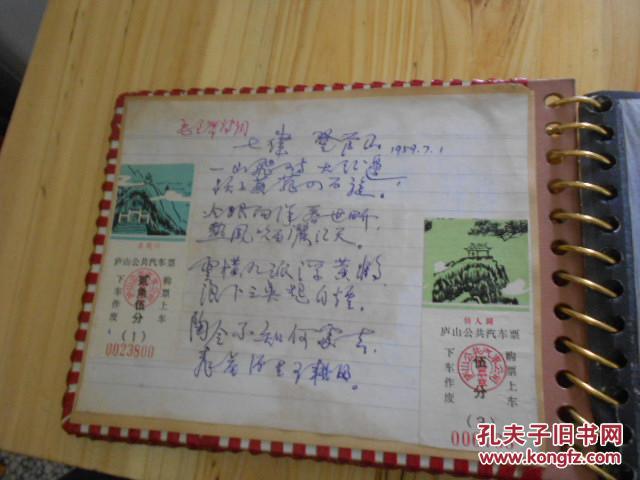 毛主席诗词
七律 登庐山 1959.7.1
一山飞峙大江边,
跃上葱茏四百旋。
冷眼向洋看世界,
热风吹雨洒江天。
雲横九派浮黄鹤,
浪下三吴起白烟。
陶令不知何处去,
桃花源里可耕田。
庐山公共汽车票
购票上车
贰角伍分
下车作废
(1)
0023800
仙人洞
庐山公共汽车票
购票上车
伍分
下车作废
(2)
孔夫子旧书网
www.kongfz.com